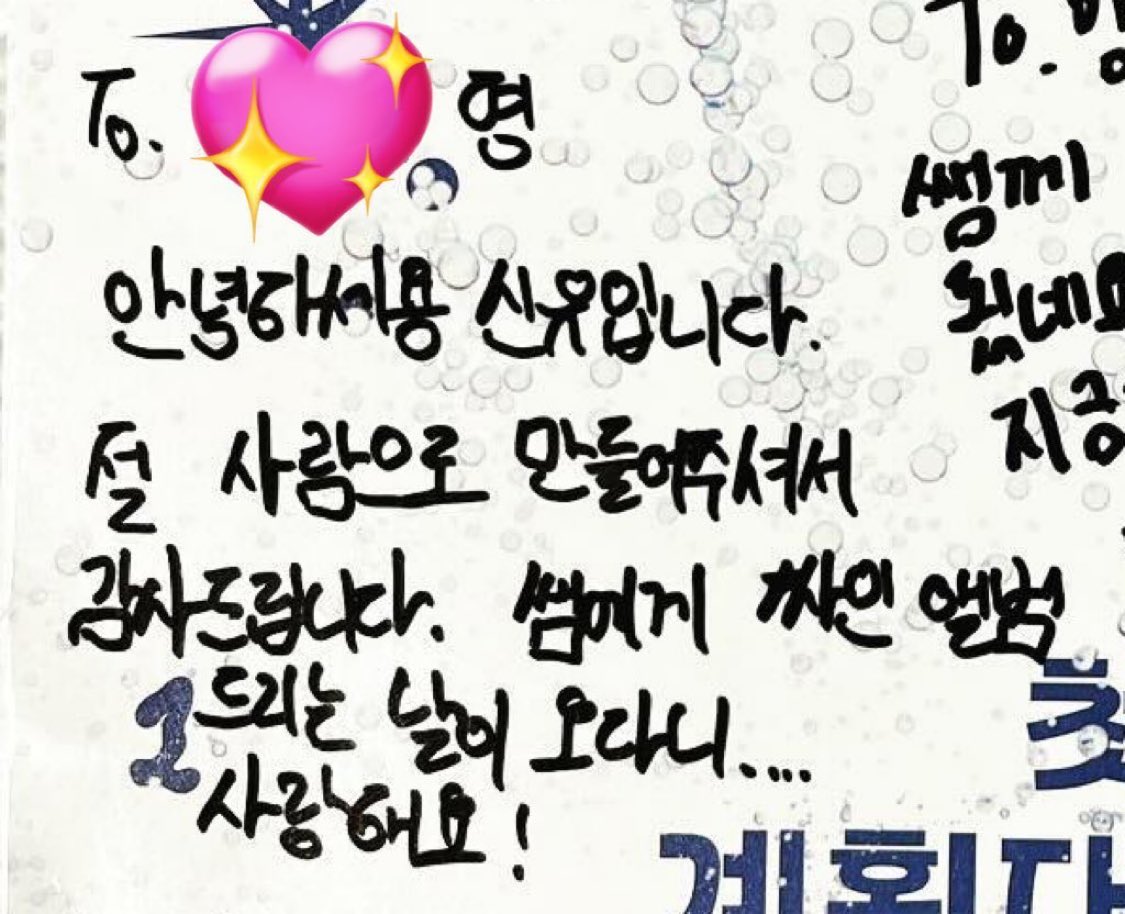 To. 명
안녕하세용 신유입니다.
절 사람으로 만들어주셔서
감사드립니다. 쌤에게 싸인 앨범
드리는 날이 오다니....
사랑해요!
1
To.
쌤께
됐네요
계획